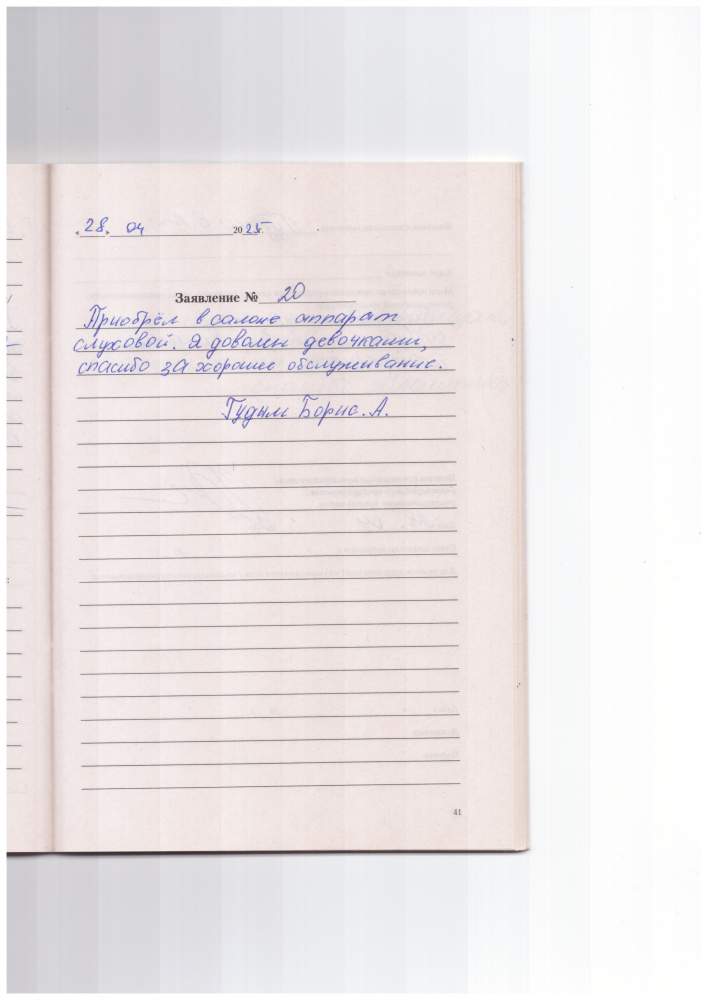 «28» 04 2025г.
Заявление № 20
Приобрёл в салоне аппарат
слуховой. Я доволен девочками,
спасибо за хорошее обслуживание.
Гудым Борис. А.
41